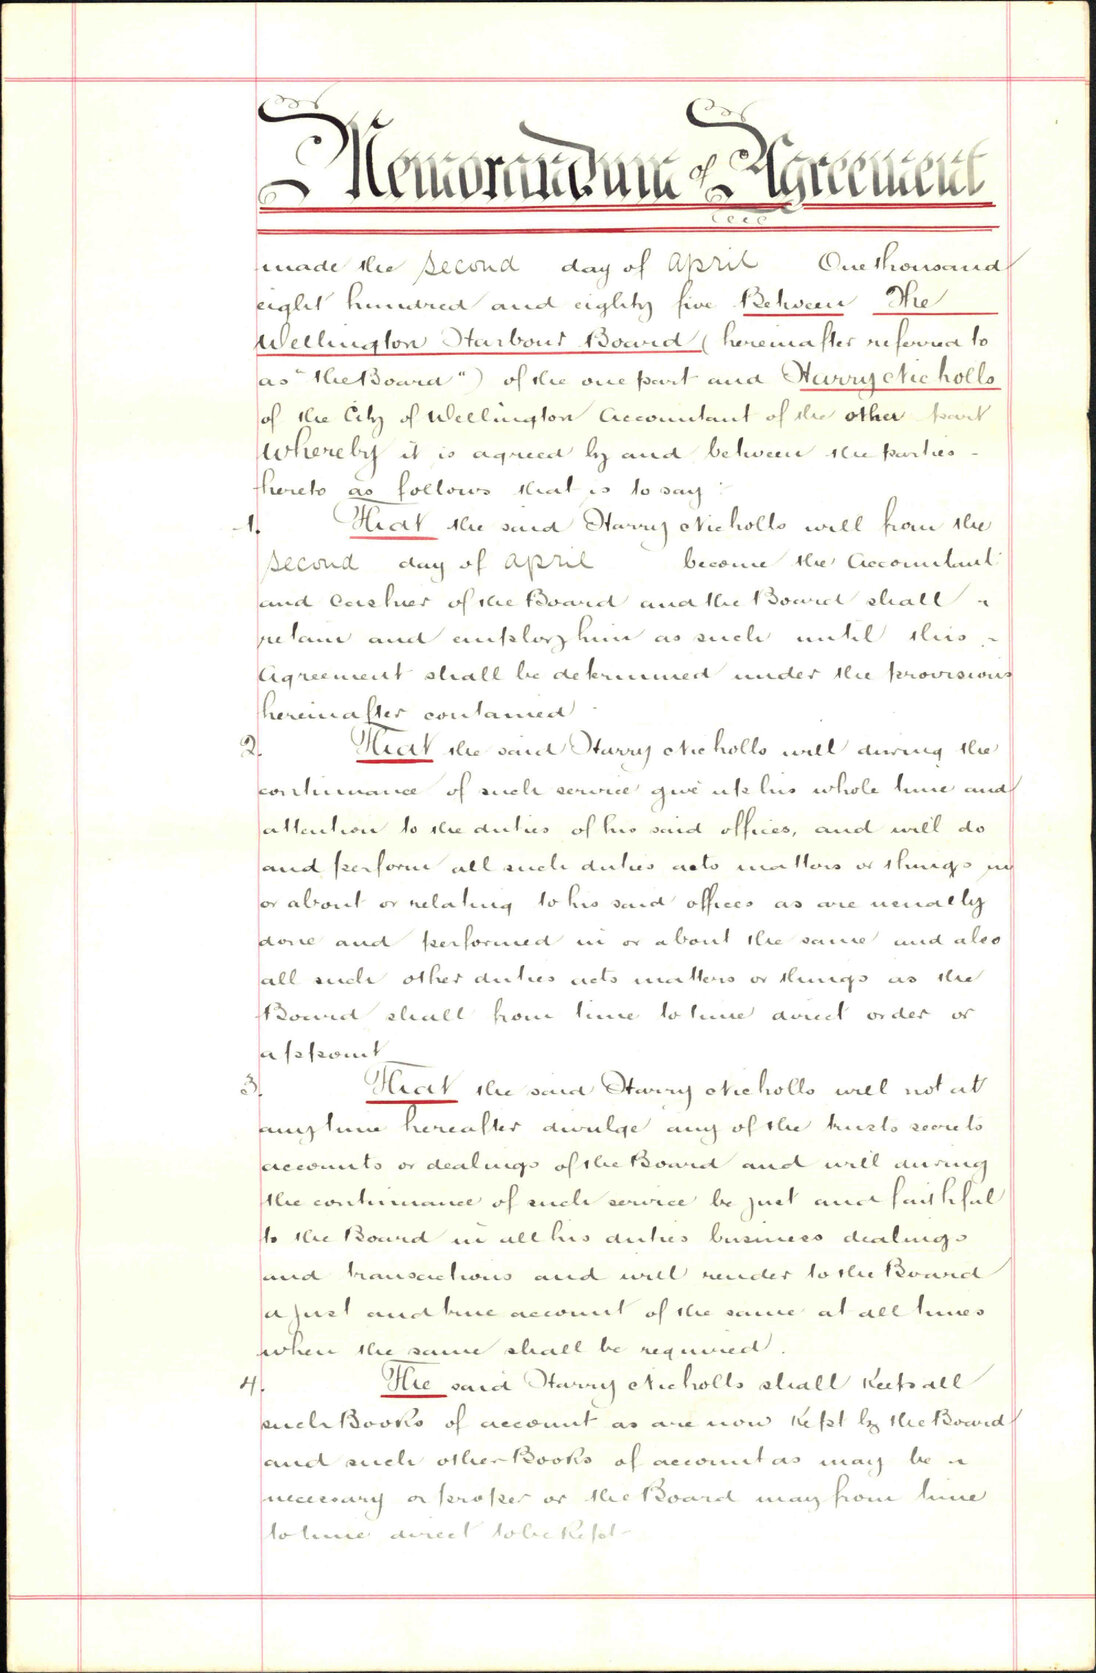 Memorandum of Agreement
made the second day of April One thousand
eight hundred and eighty five Between The
Wellington Harbour Board (hereinafter referred to
as "the Board") of the one part and Harry Nicholls
of the City of Wellington Accountant of the other part
Whereby it is agreed by and between the parties -
hereto as follows that is to say :
1. That the said Harry Nicholls will from the
second day of April become the Accountant
and Cashier of the Board and the Board shall ~
retain and employ him as such until this ~
Agreement shall be determined under the provisions
hereinafter contained
2. That the said Harry Nicholls will during the
continuance of such service give up his whole time and
attention to the duties of his said offices, and will do
and perform all such duties acts matters or things in
or about or relating to his said offices as are usually
done and performed in or about the same and also
all such other duties acts matters or things as the
Board shall from time to time direct order or
appoint
3. That the said Harry Nicholls will not at
any time hereafter divulge any of the trusts secrets
accounts or dealings of the Board and will during
the continuance of such service be just and faithful
to the Board in all his duties business dealings
and transactions and will render to the Board
a just and true account of the same at all times
when the same shall be required.
4. The said Harry Nicholls shall Keep all
such Books of account as are now Kept by the Board
and such other Books of account as may be ~
necessary or proper or the Board may from time
to time direct to be Kept -